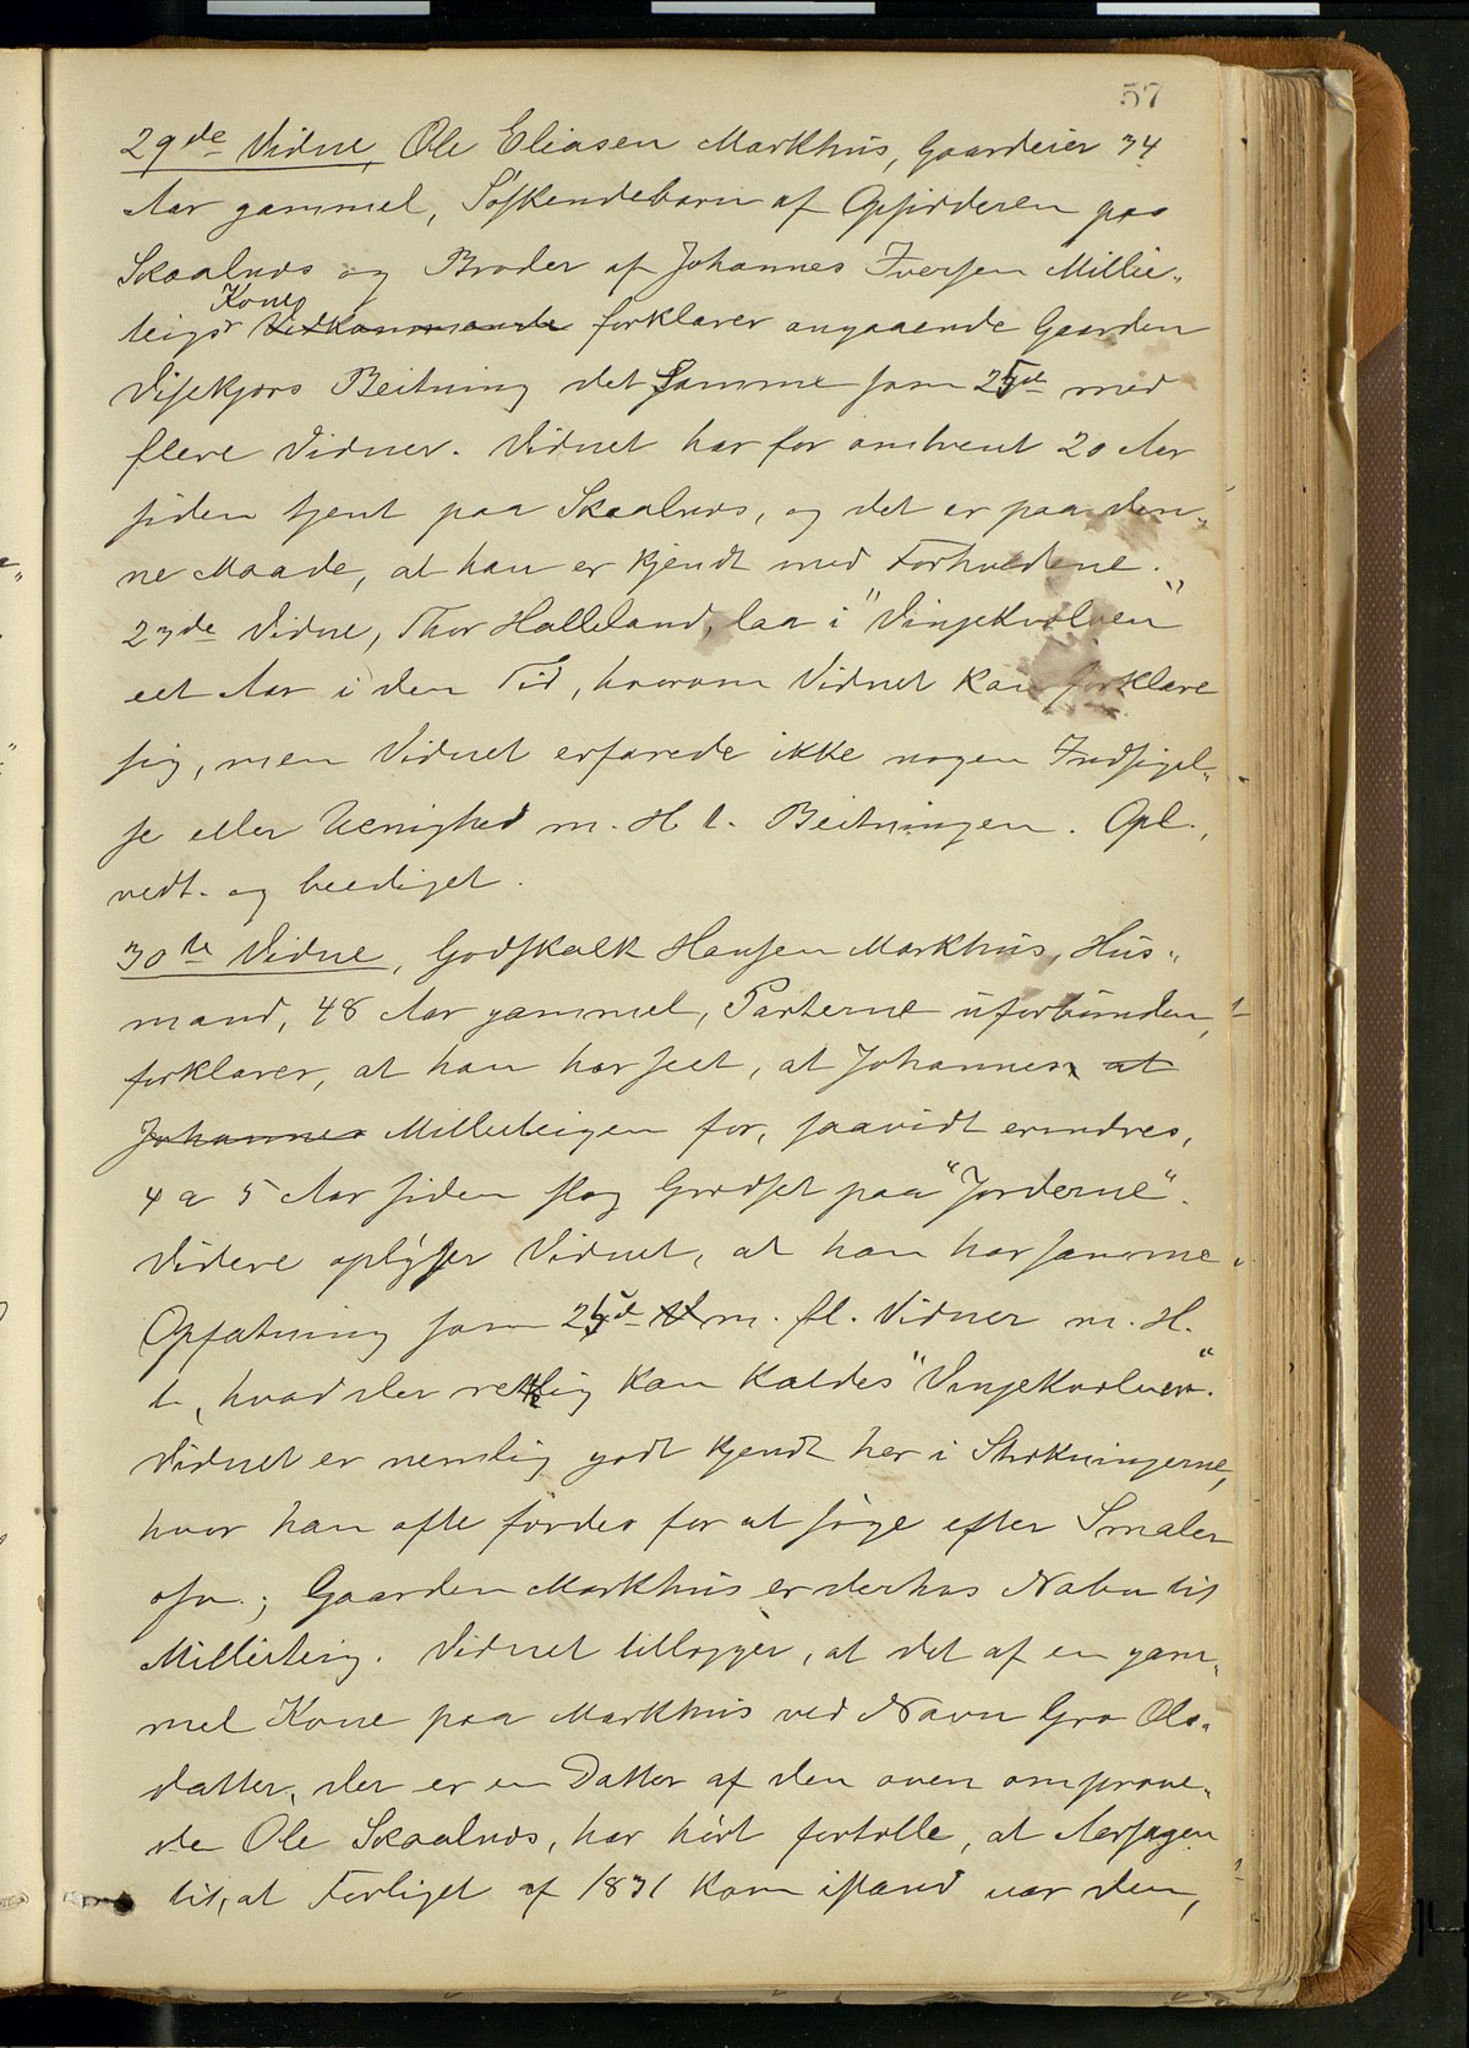 57
29de Vidne, Ole Eliasen Markhus, Gaardeier 34
Aar gammel, Søskendebarn af Opsidderen paa
Skaalnæs og Broder af Johannes Iversen Millie-
teigs Kone Vedkommende forklarer angaaende Gaarden
Visekjærs Beitning det samme som 25de med
flere Vidner. Vidnet har for omtrent 20 Aar
siden tjent paa Skaalnæs, og det er paa den-
ne Maade, at han er kjendt med Forholdene.
23de Vidne, Thor Halleland, laa i "Vinjekvolven"
eet Aar i den Tid, hvorom Vidnet kan forklare
sig, men Vidnet erfarede ikke nogen Indsigel-
se eller Uenighed m. H. t. Beitningen. Opl.,
vedt. og beediget.
30te Vidne, Godskalk Hansen Markhus, Hus-
mand, 48 Aar gammel, Parterne uforbunden,
forklarer, at han har seet, at Johannes at
Johannes Millieteigen for, saavidt erindres,
4 a 5 Aar siden slog Græsset paa "Jorderne".
Videre oplyser Vidnet, at han har samme
Opfatning som 25de V m. fl. Vidner m. H.
t. hvad der rettelig kan kaldes "Vinjekvolven".
Vidnet er nemlig godt kjendt her i Strøkningerne,
hvor han ofte færdes for at søge efter Smaler
osv.; Gaarden Markhus er derhos Nabo til
Millieteig. Vidnet tillægger, at det af en gam-
mel Kone paa Markhus ved Navn Gro Ols-
datter, der er en Datter af den oven omprove-
de Ole Skaalnæs, har hørt fortælle, at Aarsagen
til, at Forliget af 1831 kom istand var den,